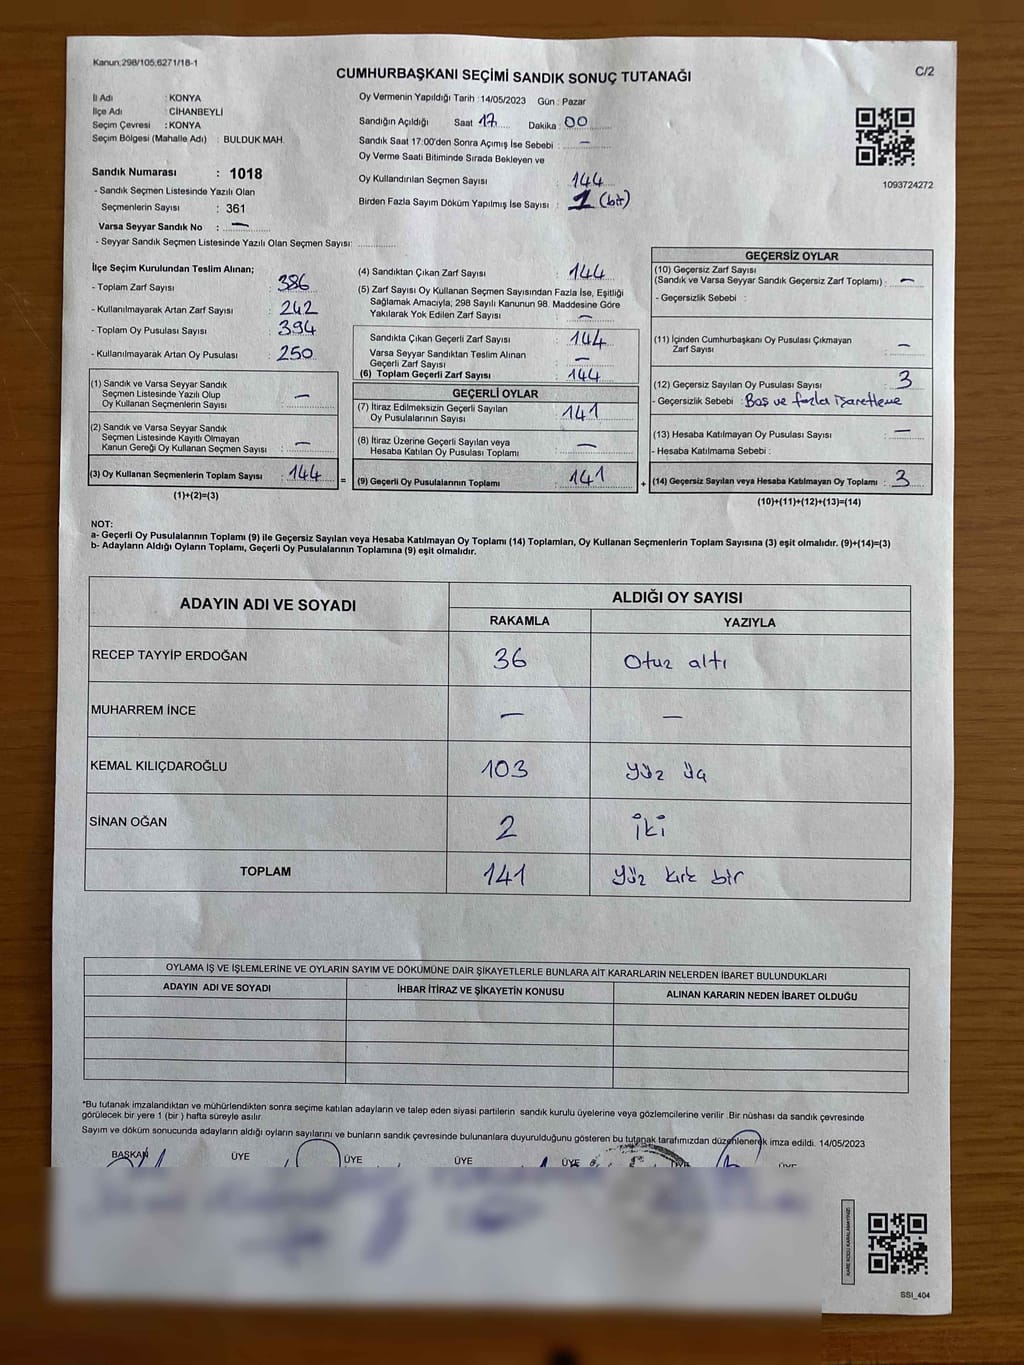 Kanun:298/105;6271/18-1
CUMHURBAŞKANI SEÇİMİ SANDIK SONUÇ TUTANAĞI
C/2
İl Adı : KONYA
İlçe Adı : CİHANBEYLİ
Seçim Çevresi : KONYA
Seçim Bölgesi (Mahalle Adı) : BULDUK MAH.
Sandık Numarası : 1018
- Sandık Seçmen Listesinde Yazılı Olan
Seçmenlerin Sayısı : 361
Varsa Seyyar Sandık No : —
- Seyyar Sandık Seçmen Listesinde Yazılı Olan Seçmen Sayısı:
Oy Vermenin Yapıldığı Tarih :14/05/2023 Gün : Pazar
Sandığın Açıldığı Saat 17 Dakika : 00
Sandık Saat 17:00'den Sonra Açımış İse Sebebi : —
Oy Verme Saati Bitiminde Sırada Bekleyen ve
Oy Kullandırılan Seçmen Sayısı : 144
Birden Fazla Sayım Döküm Yapılmış İse Sayısı : 1 (bir)
1093724272
İlçe Seçim Kurulundan Teslim Alınan;
- Toplam Zarf Sayısı : 386
- Kullanılmayarak Artan Zarf Sayısı : 242
- Toplam Oy Pusulası Sayısı : 394
- Kullanılmayarak Artan Oy Pusulası : 250
(1) Sandık ve Varsa Seyyar Sandık
Seçmen Listesinde Yazılı Olup
Oy Kullanan Seçmenlerin Sayısı : —
(2) Sandık ve Varsa Seyyar Sandık
Seçmen Listesinde Kayıtlı Olmayan
Kanun Gereği Oy Kullanan Seçmen Sayısı : —
(3) Oy Kullanan Seçmenlerin Toplam Sayısı : 144
(1)+(2)=(3)
=
(4) Sandıktan Çıkan Zarf Sayısı : 144
(5) Zarf Sayısı Oy Kullanan Seçmen Sayısından Fazla İse, Eşitliği
Sağlamak Amacıyla; 298 Sayılı Kanunun 98. Maddesine Göre
Yakılarak Yok Edilen Zarf Sayısı : —
Sandıkta Çıkan Geçerli Zarf Sayısı : 144
Varsa Seyyar Sandıktan Teslim Alınan
Geçerli Zarf Sayısı : —
(6) Toplam Geçerli Zarf Sayısı : 144
GEÇERLİ OYLAR
(7) İtiraz Edilmeksizin Geçerli Sayılan
Oy Pusulalarının Sayısı : 141
(8) İtiraz Üzerine Geçerli Sayılan veya
Hesaba Katılan Oy Pusulası Toplamı : —
(9) Geçerli Oy Pusulalarının Toplamı : 141
+
GEÇERSİZ OYLAR
(10) Geçersiz Zarf Sayısı
(Sandık ve Varsa Seyyar Sandık Geçersiz Zarf Toplamı) : —
- Geçersizlik Sebebi :
(11) İçinden Cumhurbaşkanı Oy Pusulası Çıkmayan
Zarf Sayısı : —
(12) Geçersiz Sayılan Oy Pusulası Sayısı : 3
- Geçersizlik Sebebi : Boş ve fazla işaretleme
(13) Hesaba Katılmayan Oy Pusulası Sayısı : —
- Hesaba Katılmama Sebebi :
(14) Geçersiz Sayılan veya Hesaba Katılmayan Oy Toplamı : 3
(10)+(11)+(12)+(13)=(14)
NOT:
a- Geçerli Oy Pusulalarının Toplamı (9) ile Geçersiz Sayılan veya Hesaba Katılmayan Oy Toplamı (14) Toplamları, Oy Kullanan Seçmenlerin Toplam Sayısına (3) eşit olmalıdır. (9)+(14)=(3)
b- Adayların Aldığı Oyların Toplamı, Geçerli Oy Pusulalarının Toplamına (9) eşit olmalıdır.
ADAYIN ADI VE SOYADI ALDIĞI OY SAYISI
RAKAMLA YAZIYLA
RECEP TAYYİP ERDOĞAN 36 Otuz altı
MUHARREM İNCE — —
KEMAL KILIÇDAROĞLU 103 Yüz üç
SİNAN OĞAN 2 İki
TOPLAM 141 Yüz kırk bir
OYLAMA İŞ VE İŞLEMLERİNE VE OYLARIN SAYIM VE DÖKÜMÜNE DAİR ŞİKAYETLERLE BUNLARA AİT KARARLARIN NELERDEN İBARET BULUNDUKLARI
ADAYIN ADI VE SOYADI İHBAR İTİRAZ VE ŞİKAYETİN KONUSU ALINAN KARARIN NEDEN İBARET OLDUĞU
*Bu tutanak imzalandıktan ve mühürlendikten sonra seçime katılan adayların ve talep eden siyasi partilerin sandık kurulu üyelerine veya gözlemcilerine verilir .Bir nüshası da sandık çevresinde
görülecek bir yere 1 (bir ) hafta süreyle asılır.
Sayım ve döküm sonucunda adayların aldığı oyların sayılarını ve bunların sandık çevresinde bulunanlara duyurulduğunu gösteren bu tutanak tarafımızdan düzenlenerek imza edildi. 14/05/2023
BAŞKAN ÜYE ÜYE ÜYE ÜYE ÜYE ÜYE
SSI_404